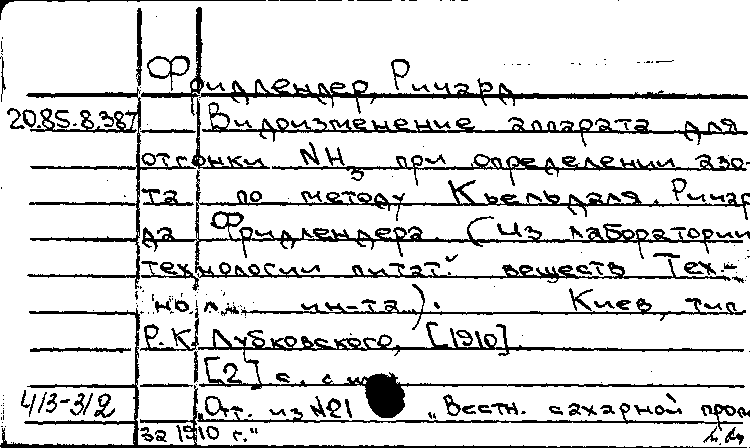 Фридлендер, Ричард
20.85.8.387 Видоизменение аппарата для
отгонки NH3 при определении азо-
та по методу Кьельдаля. Ричар
да Фридлендера. (Из лаборатории
технологии питат. веществ Тех-
нол. ин-та). Киев, тип.
Р. К. Лубковского, [1910].
[2] с.
4/3-312 "От. из №21 "Вестн. сахарной пром
за 1910 г."